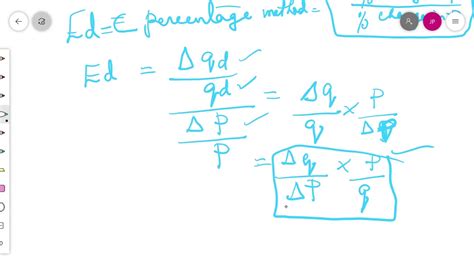 Ed = € percentage method =
%
% change in
Ed = Δqd/qd / ΔP/P = Δq/q × P/ΔP
= Δq/ΔP × P/q